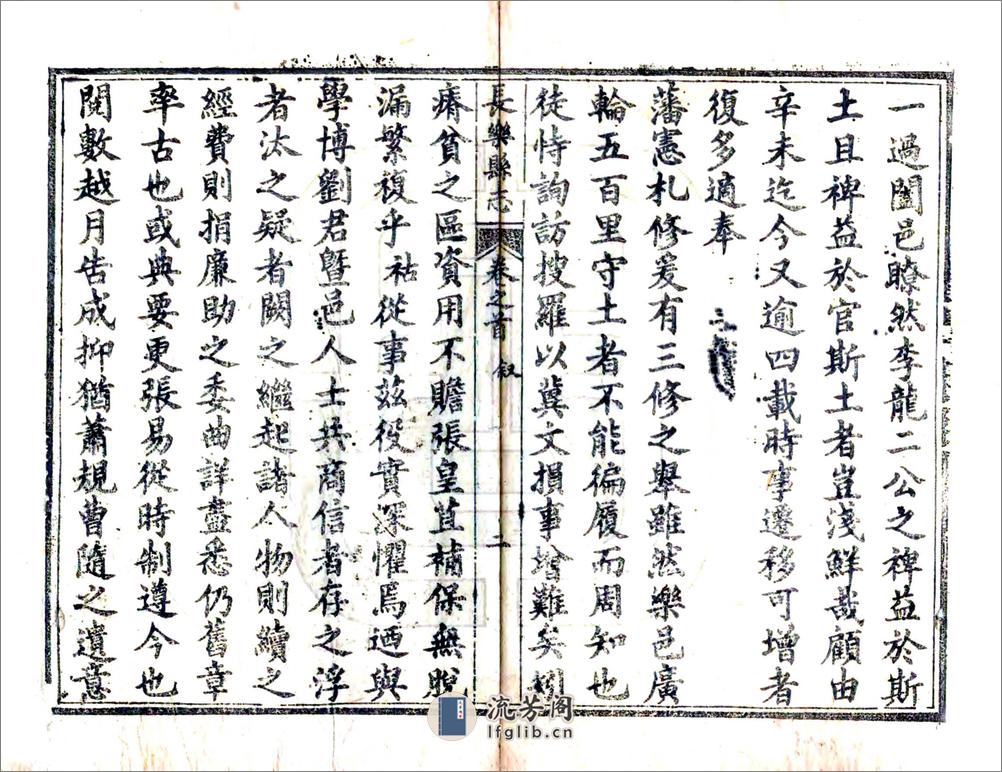 一過闔邑瞭然李龍二公之裨益於斯
土且裨益於官斯土者豈淺鮮哉顧由
辛未迄今又逾四載時事遷移可增者
復多適奉
藩憲札修爰有三修之舉雖然樂邑廣
輪五百里守土者不能徧履而周知也
徒恃詢訪搜羅以冀文損事增難矣矧
長樂縣志 卷之首 叙 二
瘠貧之區資用不贍張皇苴補保無脫
漏繁複乎祜從事茲役實深懼焉迺與
學博劉君暨邑人士共商信者存之浮
者汰之疑者闕之繼起諸人物則續之
經費則捐廉助之委曲詳盡悉仍舊章
率古也或典要更張易從時制遵今也
閱數越月告成抑猶蕭規曹隨之遺意
流芳阁
lfglib.cn